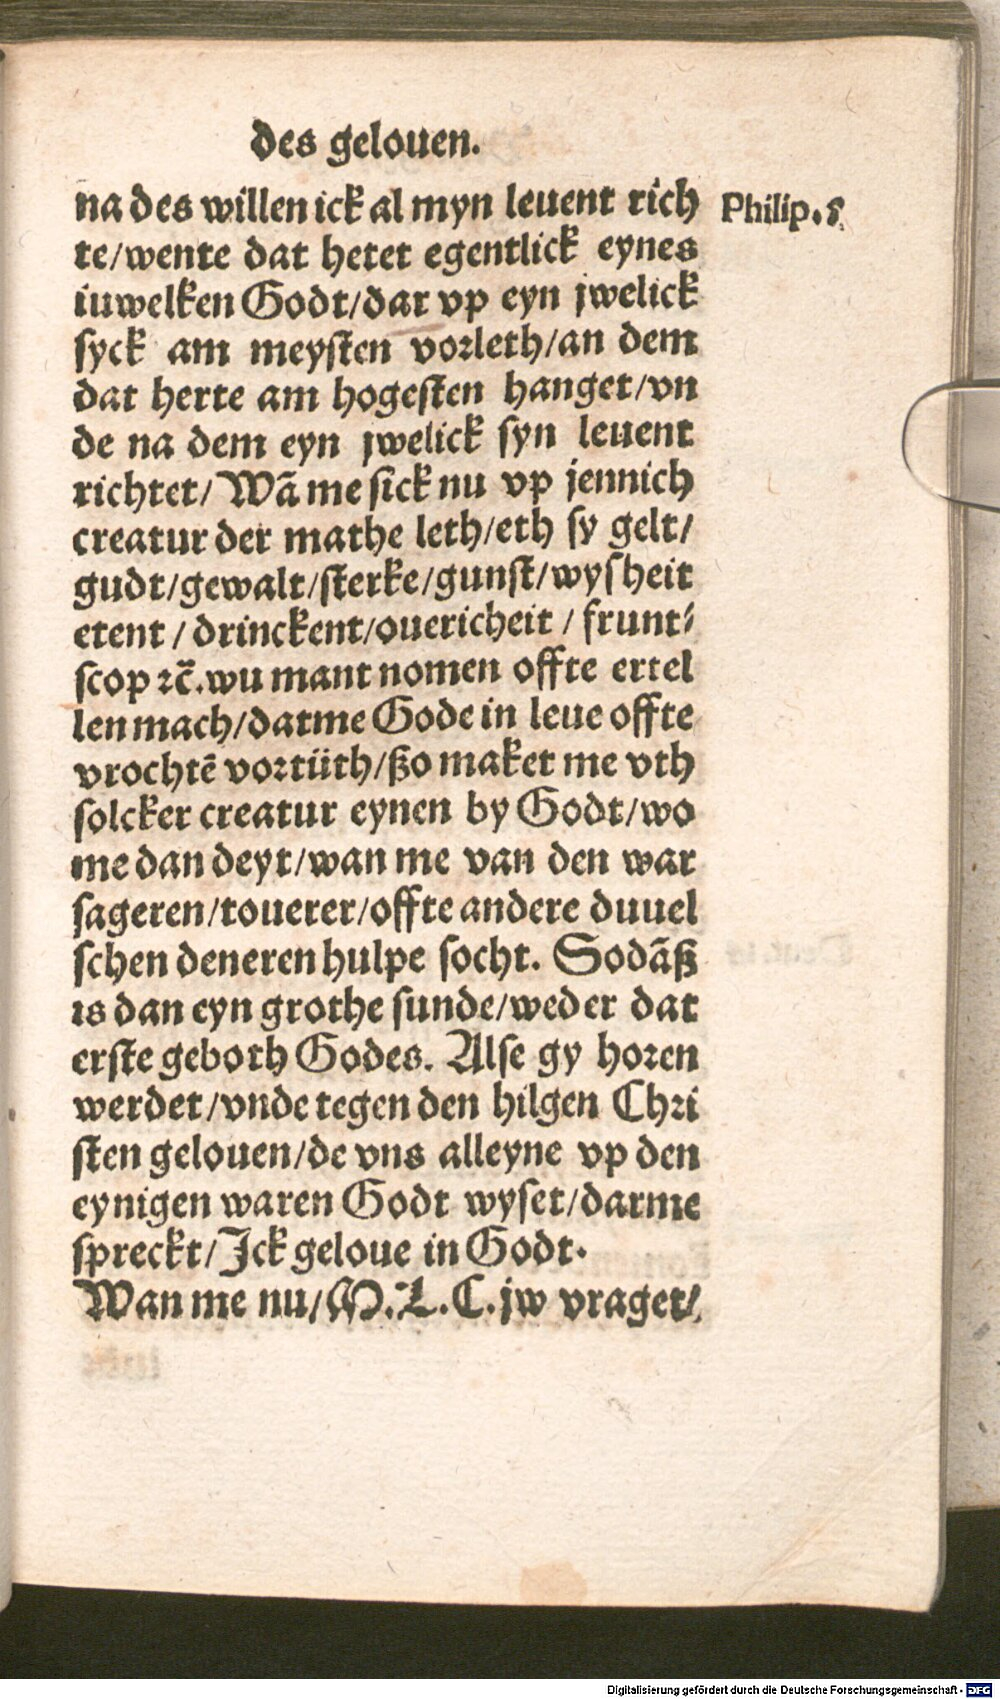 des gelouen.
na des willen ick al myn leuent rich
te/wente dat hetet egentlick eynes
iuwelken Godt/dar vp eyn jwelick
syck am meysten vorleth/an dem
dat herte am hogesten hanget/vn
de na dem eyn jwelick syn leuent
richtet/Wā me sick nu vp jennich
creatur der mathe leth/eth sy gelt/
gudt/gewalt/sterke/gunst/wysheit
etent/drinckent/ouericheit/frunt⸗
scop ꝛc̄.wu mant nomen offte ertel
len mach/datme Gode in leue offte
vrochtē vortüth/ßo maket me vth
solcker creatur eynen by Godt/wo
me dan deyt/wan me van den war
sageren/touerer/offte andere duuel
schen deneren hulpe socht. Sodāß
is dan eyn grothe sunde/weder dat
erste geboth Godes. Alse gy horen
werdet/vnde tegen den hilgen Chri
sten gelouen/de vns alleyne vp den
eynigen waren Godt wyset/darme
spreckt/Ick geloue in Godt.
Wan me nu/M.L.C.jw vraget/
Philip.
Digitalisierung gefördert durch die Deutsche Forschungsgemeinschaft - DFG